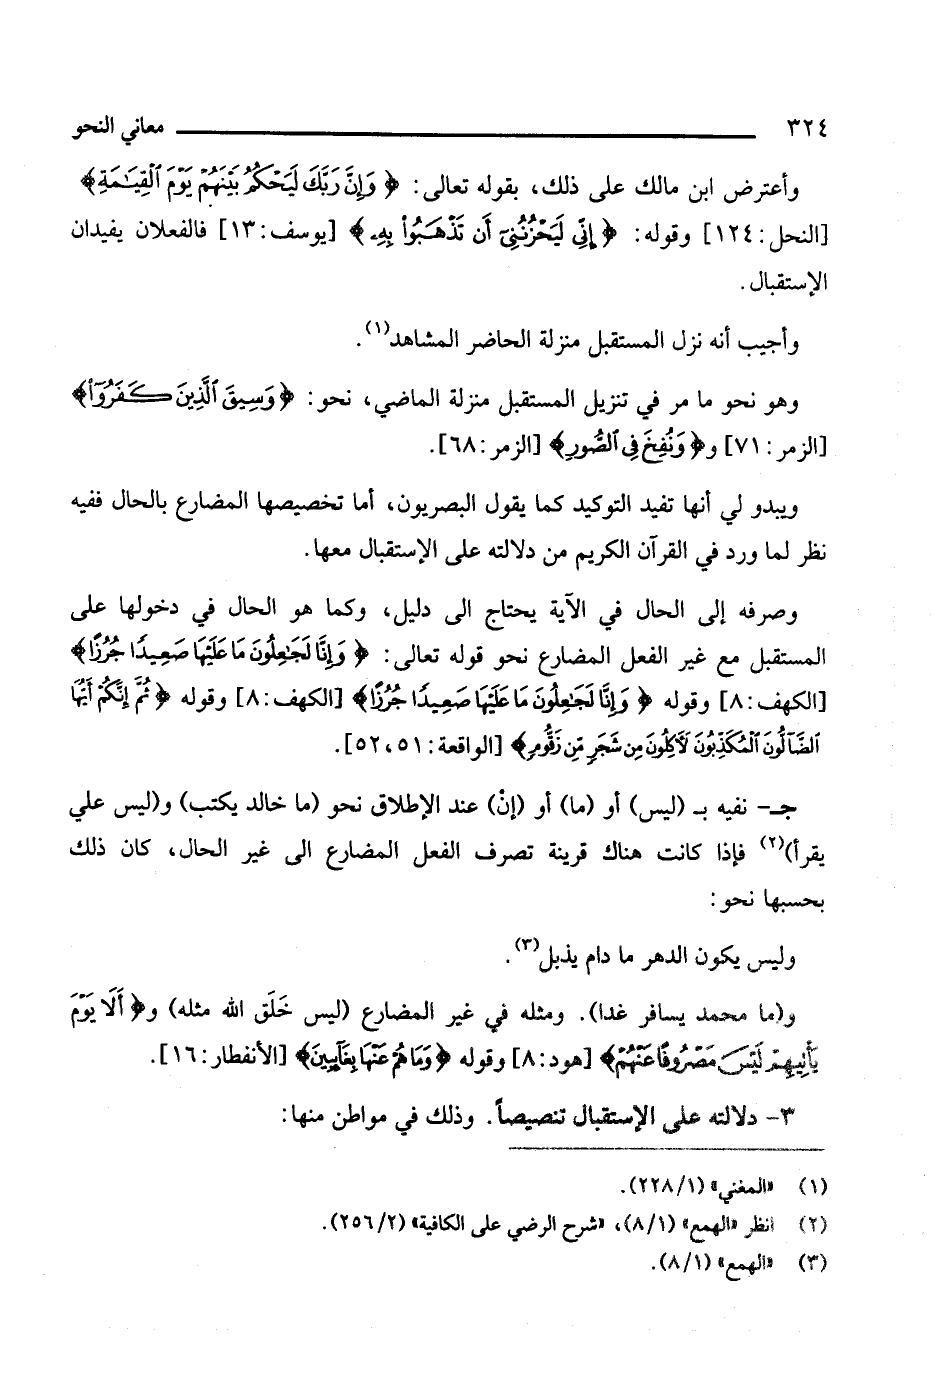 ٣٢٤ معاني النحو
وأعترض ابن مالك على ذلك، بقوله تعالى: ﴿وَإِنَّ رَبَّكَ لَيَحْكُمُ بَيْنَهُمْ يَوْمَ ٱلْقِيَٰمَةِ﴾
[النحل: ١٢٤] وقوله: ﴿إِنِّى لَيَحْزُنُنِىٓ أَن تَذْهَبُوا۟ بِهِۦ﴾ [يوسف: ١٣] فالفعلان يفيدان
الإستقبال.
وأجيب أنه نزل المستقبل منزلة الحاضر المشاهد(١).
وهو نحو ما مر في تنزيل المستقبل منزلة الماضي، نحو: ﴿وَسِيقَ ٱلَّذِينَ كَفَرُوٓا۟﴾
[الزمر: ٧١] و﴿وَنُفِخَ فِى ٱلصُّورِ﴾ [الزمر: ٦٨].
ويبدو لي أنها تفيد التوكيد كما يقول البصريون، أما تخصيصها المضارع بالحال ففيه
نظر لما ورد في القرآن الكريم من دلالته على الإستقبال معها.
وصرفه إلى الحال في الآية يحتاج الى دليل، وكما هو الحال في دخولها على
المستقبل مع غير الفعل المضارع نحو قوله تعالى: ﴿وَإِنَّا لَجَٰعِلُونَ مَا عَلَيْهَا صَعِيدًا جُرُزًا﴾
[الكهف: ٨] وقوله ﴿وَإِنَّا لَجَٰعِلُونَ مَا عَلَيْهَا صَعِيدًا جُرُزًا﴾ [الكهف: ٨] وقوله ﴿ثُمَّ إِنَّكُمْ أَيُّهَا
ٱلضَّآلُّونَ ٱلْمُكَذِّبُونَ لَءَاكِلُونَ مِن شَجَرٍ مِّن زَقُّومٍ﴾ [الواقعة: ٥١، ٥٢].
جـ- نفيه بـ (ليس) أو (ما) أو (إنْ) عند الإطلاق نحو (ما خالد يكتب) و(ليس علي
يقرأ)(٢) فإذا كانت هناك قرينة تصرف الفعل المضارع الى غير الحال، كان ذلك
بحسبها نحو:
وليس يكون الدهر ما دام يذبل(٣).
و(ما محمد يسافر غدا). ومثله في غير المضارع (ليس خَلَق الله مثله) و﴿أَلَا يَوْمَ
يَأْتِيهِمْ لَيْسَ مَصْرُوفًا عَنْهُمْ﴾ [هود: ٨] وقوله ﴿وَمَا هُمْ عَنْهَا بِغَآئِبِينَ﴾ [الأنفطار: ١٦].
٣- دلالته على الإستقبال تنصيصاً. وذلك في مواطن منها:
(١) «المغني» (١/ ٢٢٨).
(٢) انظر «الهمع» (١/ ٨)، «شرح الرضي على الكافية» (٢/ ٢٥٦).
(٣) «الهمع» (١/ ٨).